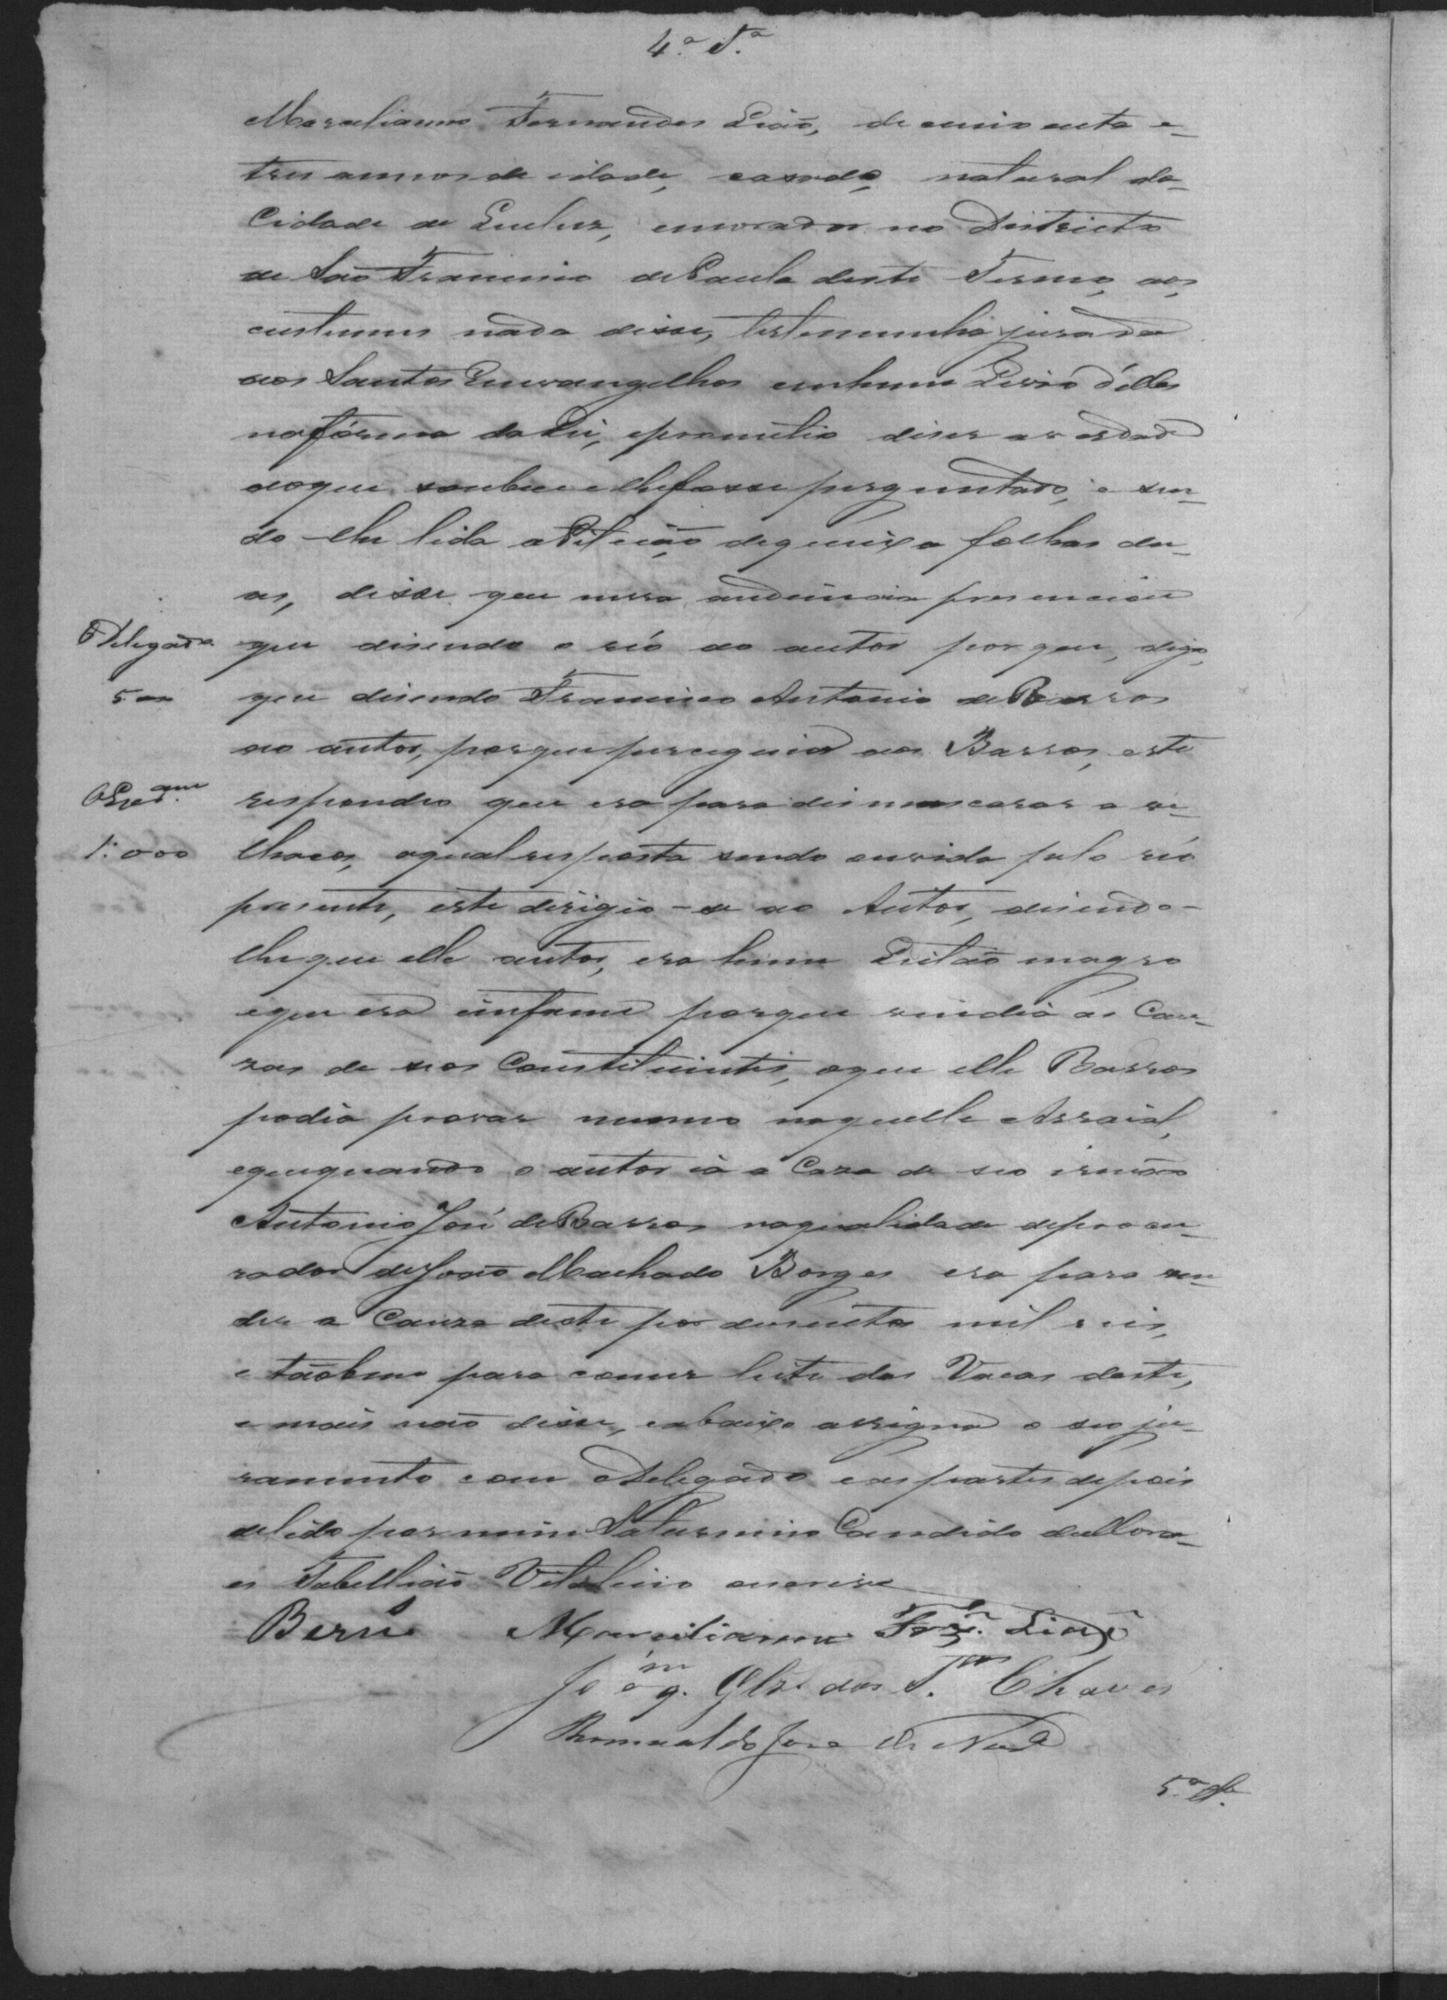 4.ª T.ª
Marcelianno Fernandes Lião, de cincoenta e
tres annos de idade, casado, natural da
Cidade de Queluz, emorador no Districto
de São Francisco de Paula deste Termo, aos
custumes nada disse, testemunha jurada
aos Santos Euvangelhos emhum Livro d'elles
nafórma da Lei, eprometio diser averdade
doque soubece elhefosse perguntado, e sen-
do-lhe lida a Petição dequeixa folhas du-
as, disse que nessa audiencia presenciou
que disendo o réo ao autor porque, digo,
que disendo Francisco Antonio de Barros
ao autor, porque perceguia aos Barros, este
respondeo que era para desmascarar a ve-
lhacos, aqual resposta sendo ouvida pelo réo
presente, este dirigio-se ao Autor, disendo-
lhe que elle autor, era hum Leitão magro
eque era infame porque vendia as Cau-
zas de seos Constituintes, oque elle Barros
podia provar mesmo naquelle Arraial,
equequando o autor ia a Caza de seo irmão
Antonio José de Barros naqualidade deprocu-
rador de João Machado Borges era para ven-
der a Cauza deste por dusentos mil reis,
e taobem para comer leite das Vacas deste,
e mais não disse, eabaixo assigna o seo ju-
ramento com o Delegado easpartes depois
delido por mim Saturnino Candido de Mora-
es Tabellião Vitalicio oescrevi
O Delegado
500
O Escr.am
1:000
Marcilianno Frz. Lião
Joaqm. Glz. dos S.tos Chaves
Romualdo Jose de
5.ª T.